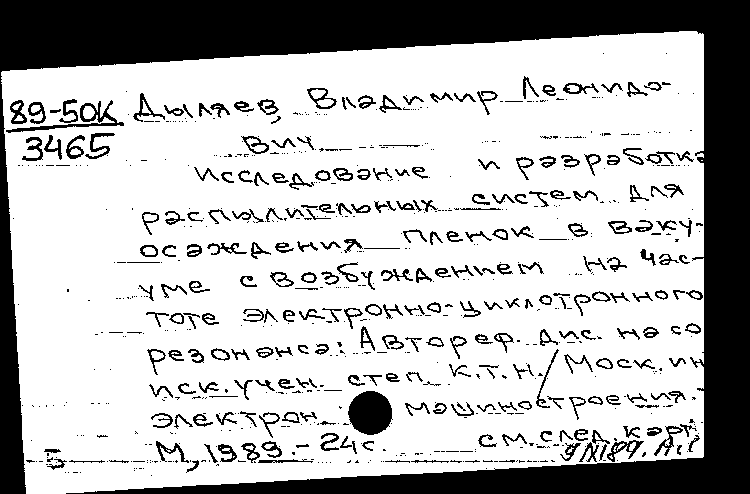 89-50К Дыляев, Владимир Леонидо-
3465 вич
Исследование и разработка
распылительных систем для
осаждения пленок в ваку-
уме с возбуждением на час-
тоте электронно-циклотронного
резонанса: Автореф. дис. на со
иск. учен. степ. к.т.н./Моск. ин
электрон. машиностроения.-
М, 1989.- 24с. см. след. карт
Б